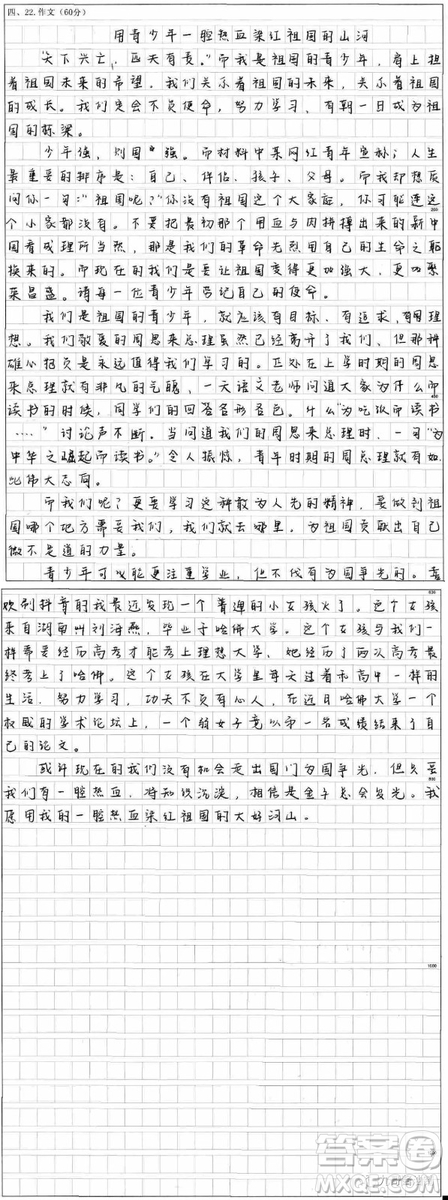 四、22.作文(60分)
用青少年一腔热血染红祖国的山河
"天下兴亡,匹夫有责。"而我是祖国的青少年,肩上担
着祖国未来的希望,我们关乎着祖国的未来,关乎着祖国
的成长。我们定会不负使命,努力学习,有朝一日成为祖
国的栋梁。
少年强,则国强。而材料中某网红青年宣称:人生
最重要的排序是:自己、伴侣、孩子、父母。而我却想反
问你一句:"祖国呢?"你没有祖国这个大家庭,你可能连这
个小家都没有。不要把最初那个用血与肉拼搏出来的新中
国看成理所当然,那是我们的革命先烈用自己的生命之躯
换来的。而现在的我们是要让祖国变得更加强大,更加繁
荣昌盛。请每一位青少年劳记自己的使命。
我们是祖国的青少年,就应该有目标,有追求,有理
想。我们敬爱的周恩来总理虽然已经离开了我们,但那种
雄心抱负是永远值得我们学习的。正处在上学时期的周恩
来总理就有非凡的气魄,一天语文老师问道大家为什么而
读书的时候,同学们的回答各形各色。什么"为吃饭而读书
……"讨论声不断。当问道我们的周恩来总理时,一句"为
中华之崛起而读书。"令人振惊,青年时期的周总理就有如
此伟大志向。
而我们呢?更要学习这种敢为人先的精神,要做到祖
国哪个地方需要我们,我们就去哪里。为祖国贡献出自己
微不足道的力量。
青少年可以能更注重学业,但不代有为国争光的。喜
欢刷抖音的我最近发现一个普通的小女孩火了。这个女孩
来自湖南叫刘海燕,毕业于哈佛大学。这个女孩与我们一
样需要经历高考才能考上理想大学,她经历了两次高考最
终考上了哈佛。这个女孩在大学生每天过着和高中一样的
生活,努力学习,功夫不负有心人,在近日哈佛大学一个
权威的学术论坛上,一个弱女子竟以第一名成绩结束了自
己的论文。
或许现在的我们没有机会走出国门为国争光,但只要
我们有一腔热血,将知识沉淀,相信是金子总会发光。我
愿用我的一腔热血染红祖国的大好河山。
答案圈
MXQE.COM